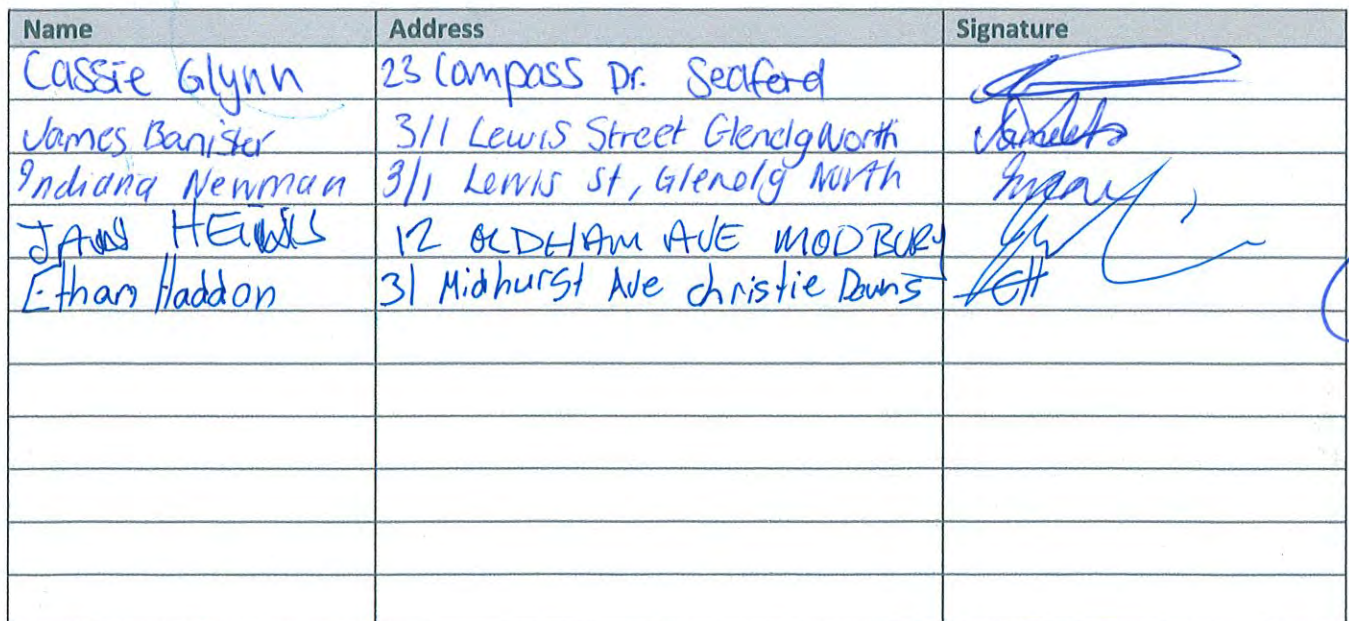 Name Address Signature
Cassie Glynn 23 Compass Dr. Seaford
James Banister 3/1 Lewis Street Glenelg North
Indiana Newman 3/1 Lewis st, Glenelg North
12 OLDHAM AVE MODBURY
Ethan Haddon 31 Midhurst Ave christie Downs EH